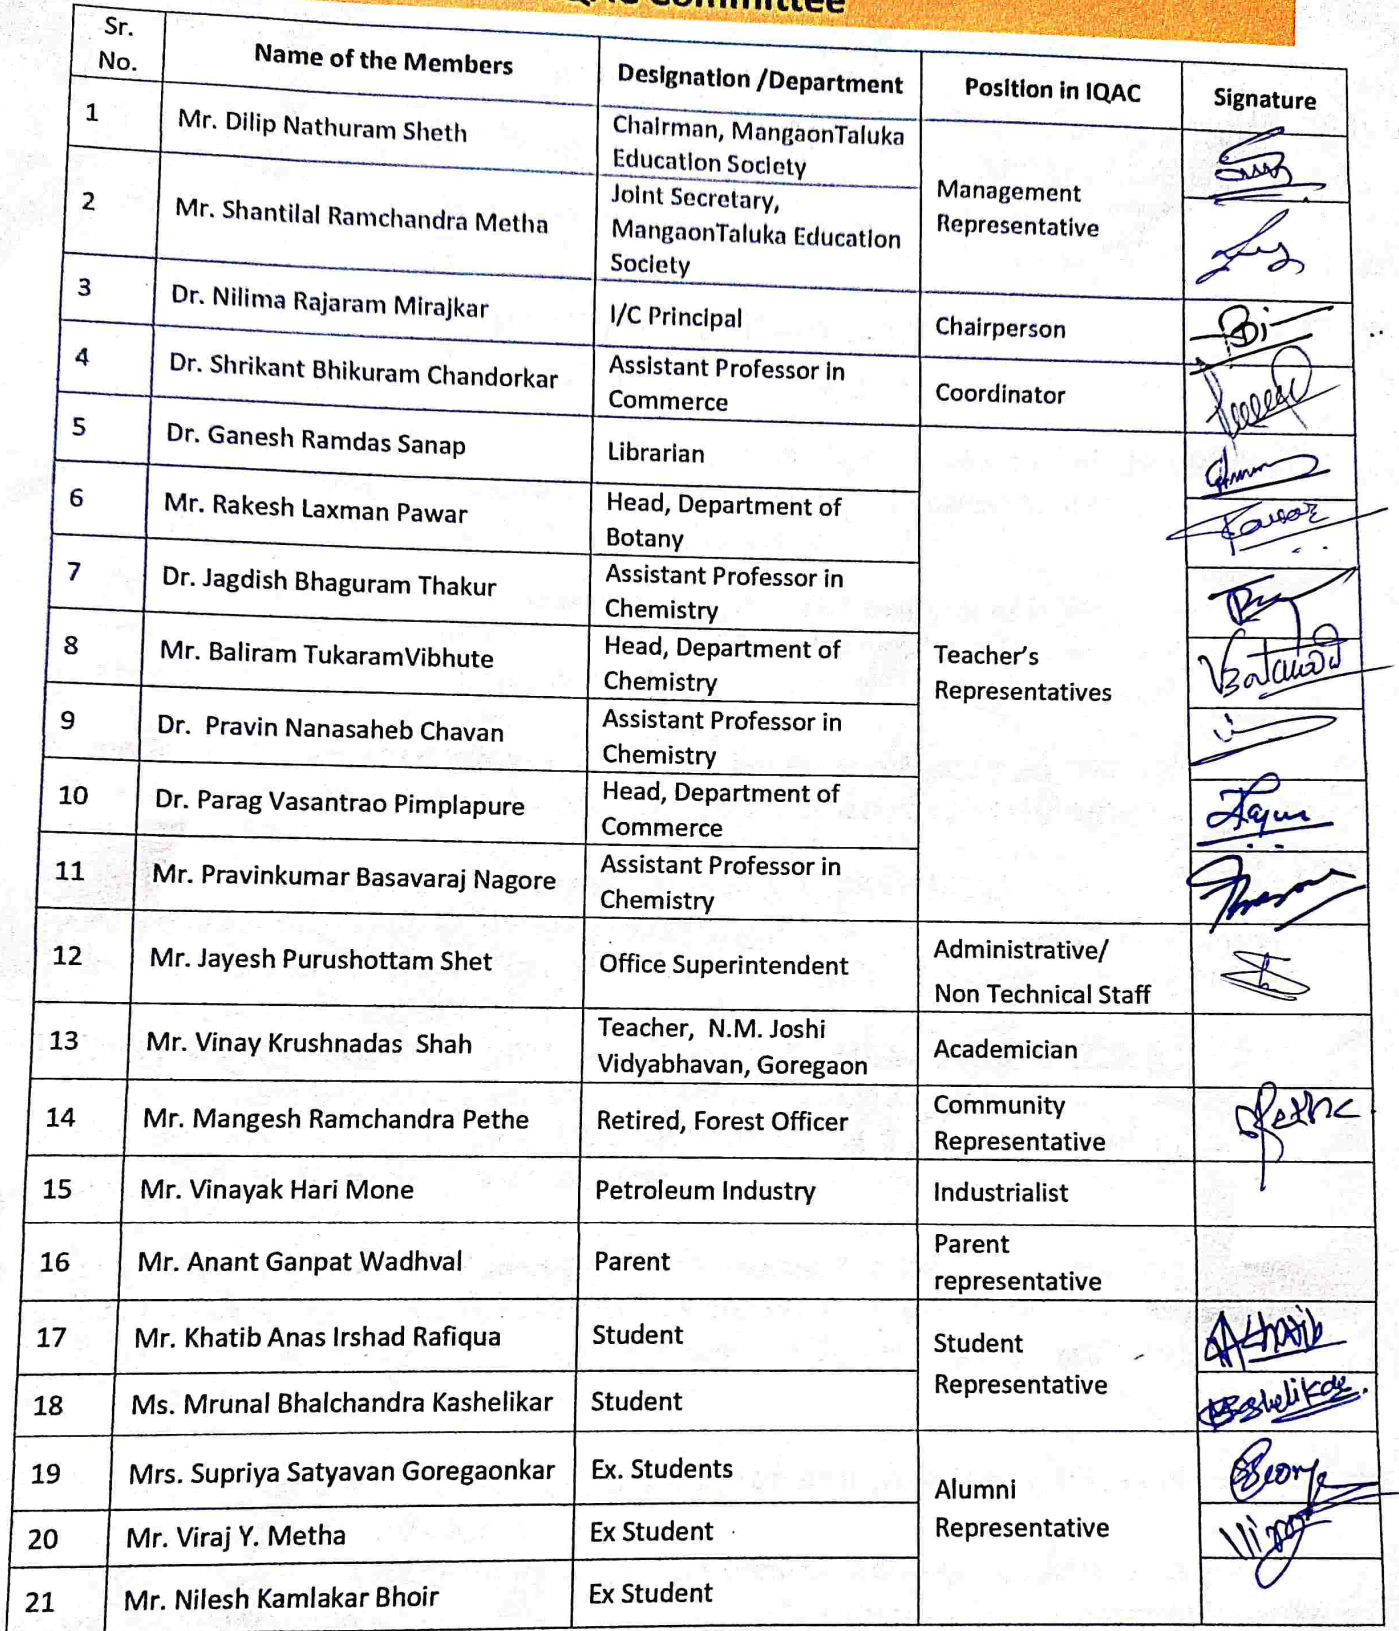 Committee
Sr. No. Name of the Members Designation /Department Position in IQAC Signature
1 Mr. Dilip Nathuram Sheth Chairman, MangaonTaluka Education Society Management Representative
2 Mr. Shantilal Ramchandra Metha Joint Secretary, MangaonTaluka Education Society
3 Dr. Nilima Rajaram Mirajkar I/C Principal Chairperson
4 Dr. Shrikant Bhikuram Chandorkar Assistant Professor in Commerce Coordinator
5 Dr. Ganesh Ramdas Sanap Librarian Teacher's Representatives
6 Mr. Rakesh Laxman Pawar Head, Department of Botany
7 Dr. Jagdish Bhaguram Thakur Assistant Professor in Chemistry
8 Mr. Baliram TukaramVibhute Head, Department of Chemistry
9 Dr. Pravin Nanasaheb Chavan Assistant Professor in Chemistry
10 Dr. Parag Vasantrao Pimplapure Head, Department of Commerce
11 Mr. Pravinkumar Basavaraj Nagore Assistant Professor in Chemistry
12 Mr. Jayesh Purushottam Shet Office Superintendent Administrative/ Non Technical Staff
13 Mr. Vinay Krushnadas Shah Teacher, N.M. Joshi Vidyabhavan, Goregaon Academician
14 Mr. Mangesh Ramchandra Pethe Retired, Forest Officer Community Representative
15 Mr. Vinayak Hari Mone Petroleum Industry Industrialist
16 Mr. Anant Ganpat Wadhval Parent Parent representative
17 Mr. Khatib Anas Irshad Rafiqua Student Student Representative
18 Ms. Mrunal Bhalchandra Kashelikar Student
19 Mrs. Supriya Satyavan Goregaonkar Ex. Students Alumni Representative
20 Mr. Viraj Y. Metha Ex Student
21 Mr. Nilesh Kamlakar Bhoir Ex Student